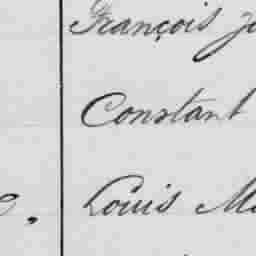 François
Constant
Louis